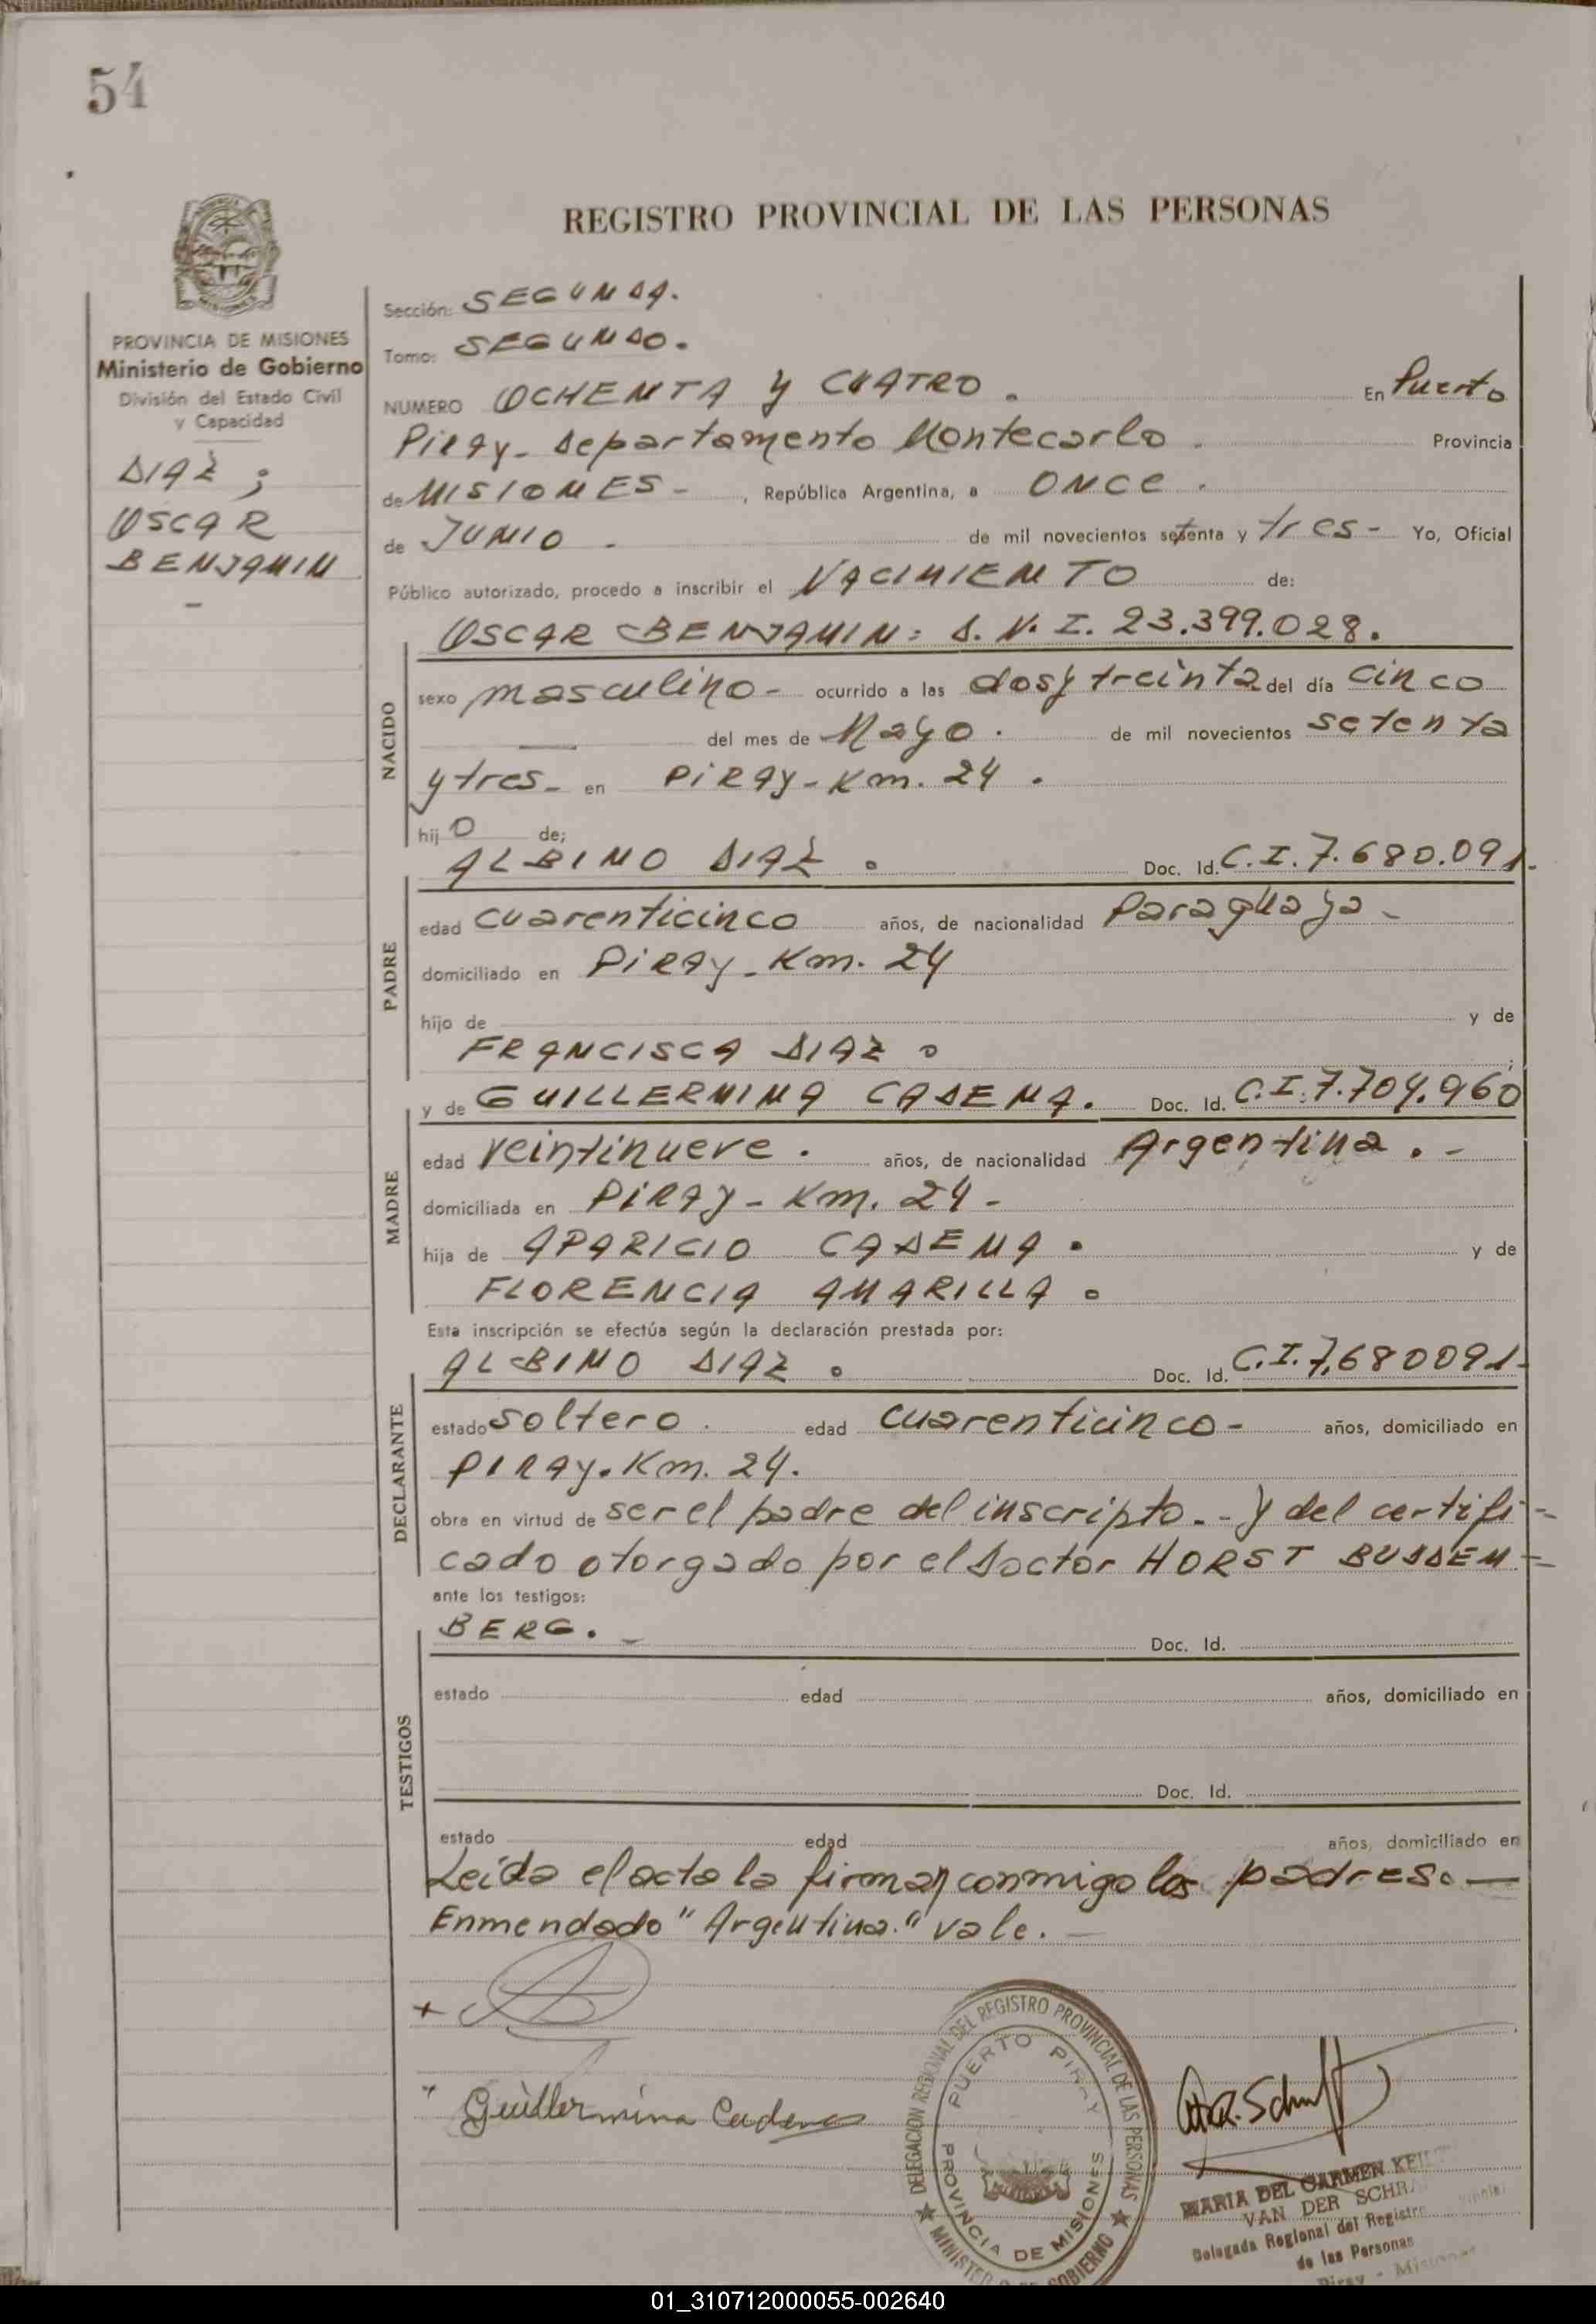 54
REGISTRO PROVINCIAL DE LAS PERSONAS
PROVINCIA DE MISIONES
Ministerio de Gobierno
División del Estado Civil
y Capacidad
DIAZ;
OSCAR
BENJAMIN
Sección: SEGUNDA.
Tomo: SEGUNDO.
NUMERO OCHENTA Y CUATRO. En Puerto
Piray- Departamento Montecarlo. Provincia
de MISIONES-, República Argentina, a ONCE.
de JUNIO. de mil novecientos setenta y tres- Yo, Oficial
Público autorizado, procedo a inscribir el NACIMIENTO de:
OSCAR BENJAMIN: D.N.I. 23.399.028.
NACIDO
sexo masculino- ocurrido a las dos y treinta del día cinco
del mes de Mayo. de mil novecientos setenta
y tres- en PIRAY-Km. 24.
hijo de;
ALBINO DIAZ. Doc. Id. C.I. 7.680.091.
PADRE
edad cuarenticinco años, de nacionalidad Paraguaya-
domiciliado en PIRAY-Km. 24
hijo de y de
FRANCISCA DIAZ.
y de GUILLERMINA CADENA. Doc. Id. C.I. 7.704.960
MADRE
edad veintinueve. años, de nacionalidad Argentina.-
domiciliada en PIRAY-Km. 24-
hija de APARICIO CADENA. y de
FLORENCIA AMARILLA.
Esta inscripción se efectúa según la declaración prestada por:
ALBINO DIAZ. Doc. Id. C.I. 7,680091-
DECLARANTE
estado soltero. edad cuarenticinco- años, domiciliado en
PIRAY. Km. 24.
obra en virtud de ser el padre del inscripto.- y del certifi-
cado otorgado por el Doctor HORST BUSDEM-
ante los testigos:
BERG.- Doc. Id.
TESTIGOS
estado edad años, domiciliado en
Doc. Id.
estado edad años, domiciliado en
Leida el acta la firman conmigo los padres.-
Enmendado "Argentina." vale.-
Guillermina Cadena
DELEGACION REGIONAL DEL REGISTRO PROVINCIAL DE LAS PERSONAS
PUERTO PIRAY
PROVINCIA DE MISIONES
MINISTERIO DE GOBIERNO
MARIA DEL CARMEN
VAN DER
Delegada Regional del Registro
de las Personas
Piray - Misiones
01_310712000055-002640